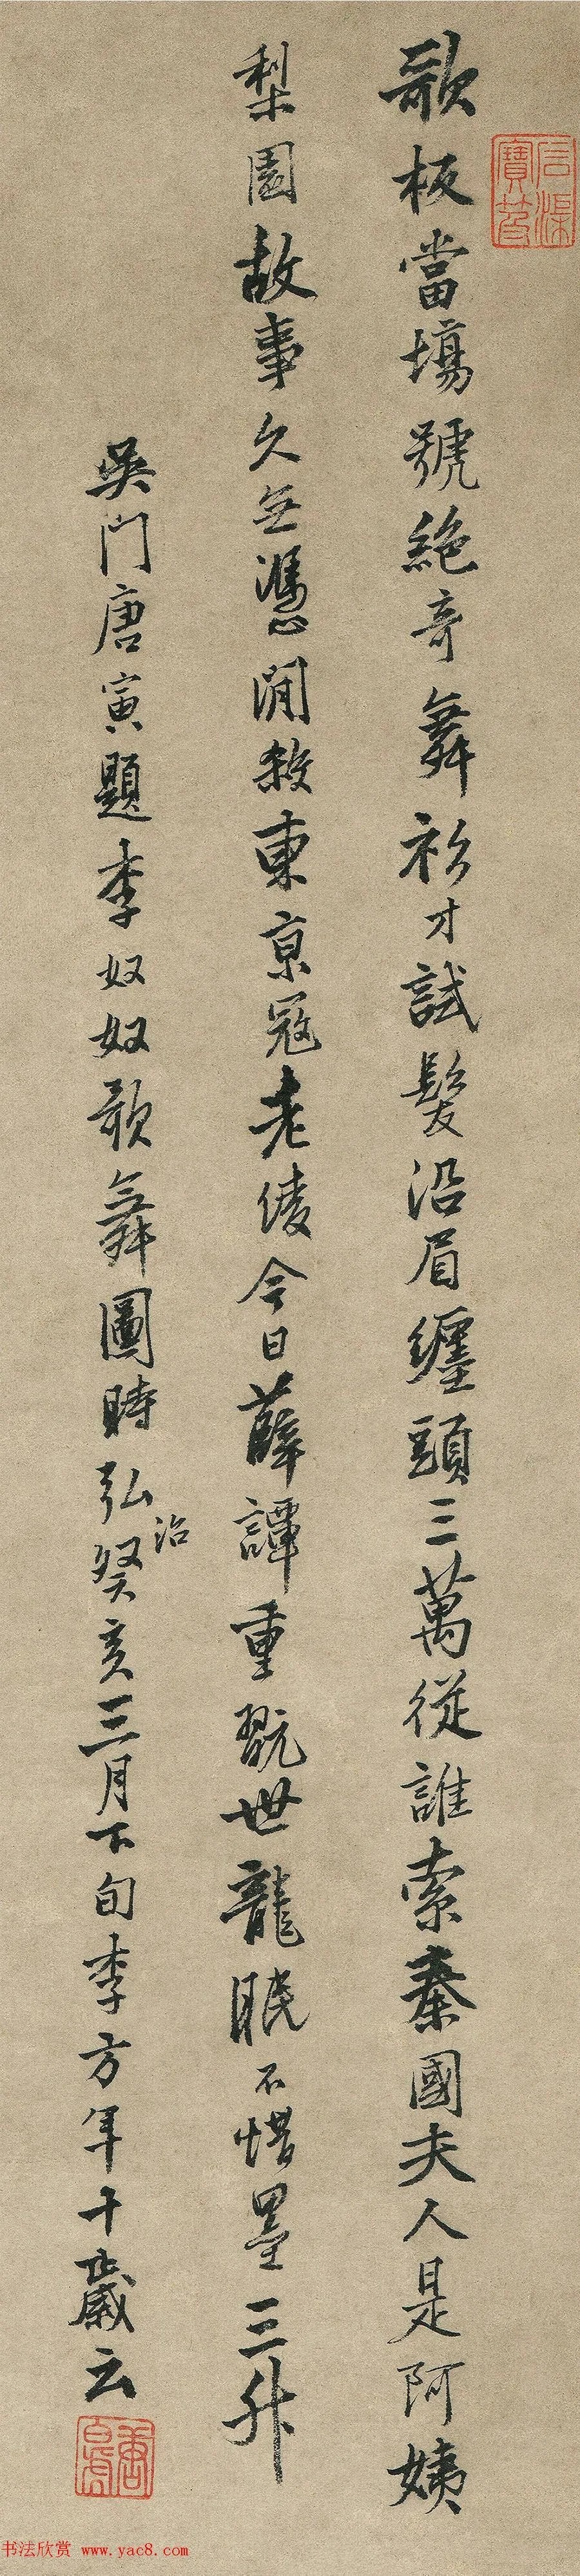 歌板當場號絶奇舞衫才試髮沿眉纏頭三萬從誰索秦國夫人是阿姨
梨園故事久無憑閒殺東京冠老倰今日薛譚重翫世龍眠不惜墨三升
吳門唐寅題李奴奴歌舞圖時弘治癸亥三月下旬李方年十歲云
唐白虎
书法欣赏 www.yac8.com